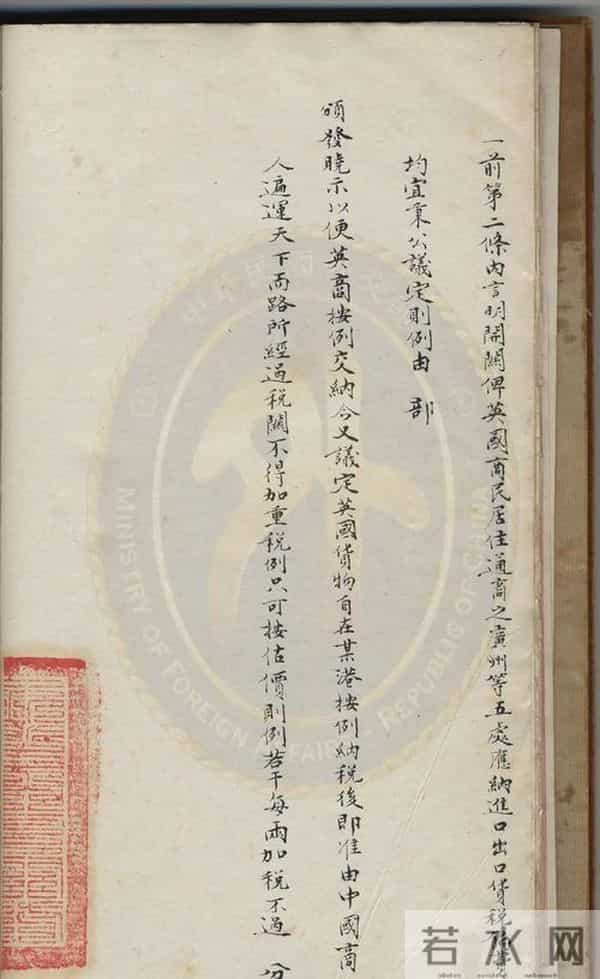 一前第二條內言明開關俾英國商民居住通商之廣州等五處應納進口出口貨稅
均宜秉公議定則例由 部
頒發曉示以便英商按例交納今又議定英國貨物自在某港按例納稅後即准由中國商
人遍運天下而路所經過稅關不得加重稅例只可按估價則例若干每兩加稅不過 分
MINISTRY OF FOREIGN AFFAIRS, REPUBLIC OF CHINA
若水网